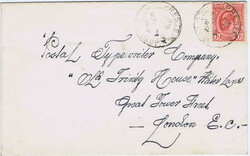 Postal Typewriter Company,
"Old Trinity House" Water Lane
Great Tower Street
London E.C.